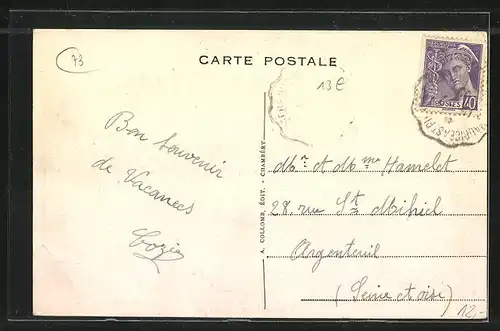 73
CARTE POSTALE
13 E
40
POSTES
Bon Souvenir
de Vacances
A. COLLOMB, ÉDIT. - CHAMBÉRY
Mr et Mme Hamelot
28, rue St Mihiel
Argenteuil
(Seine et oise)
12,-